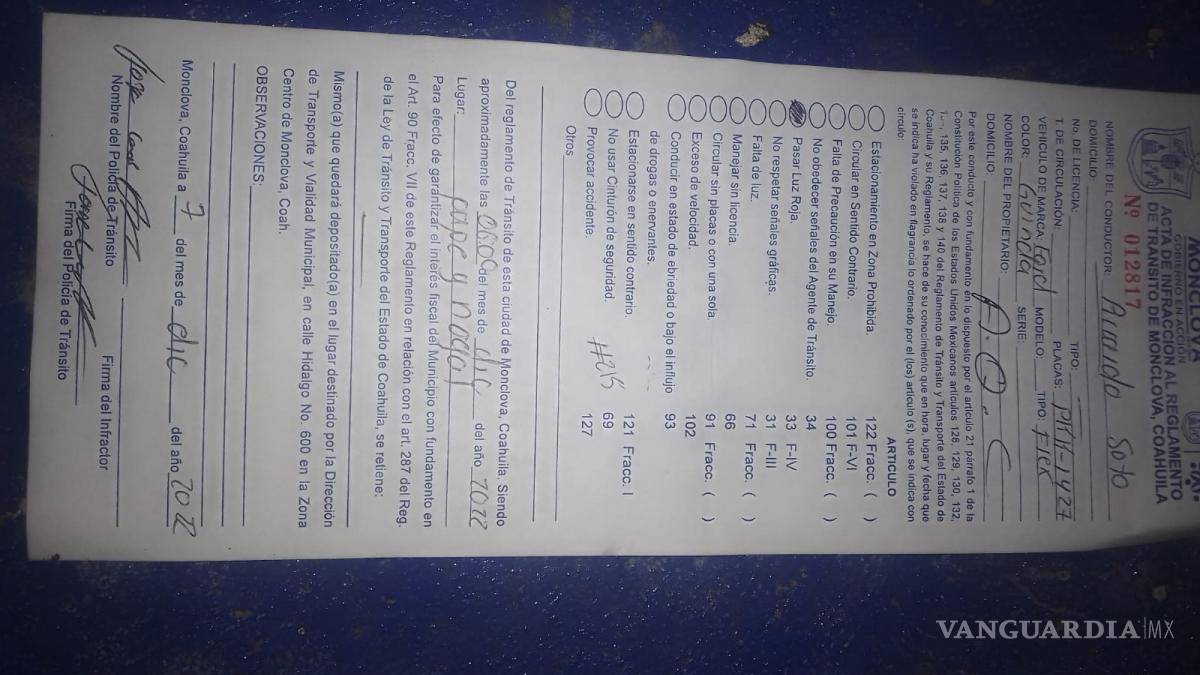 MONCLOVA
GOBIERNO EN ACCIÓN
ACTA DE INFRACCION AL REGLAMENTO
DE TRANSITO DE MONCLOVA, COAHUILA
Nº 012817
NOMBRE DEL CONDUCTOR: Ricardo Soto
DOMICILIO:
No. DE LICENCIA: TIPO:
T. DE CIRCULACIÓN: PLACAS:
VEHICULO DE MARCA: Ford MODELO: TIPO:
COLOR: Guinda SERIE:
NOMBRE DEL PROPIETARIO:
DOMICILIO:
Por este conducto y con fundamento en lo dispuesto por el artículo 21 párrafo 1 de la
Constitución Política de los Estados Unidos Mexicanos artículos 128, 129, 130, 132,
135, 136, 137, 138 y 140 del Reglamento de Tránsito y Transporte del Estado de
Coahuila y su Reglamento, se hace de su conocimiento que en hora, lugar y fecha que
se indica ha violado en flagrancia lo ordenado por el (los) artículo (s), que se indica con
círculo:
ARTICULO
Estacionamiento en Zona Prohibida. 122 Fracc. ( )
Circular en Sentido Contrario. 101 F-VI
Falta de Precaución en su Manejo. 100 Fracc. ( )
No obedecer señales del Agente de Tránsito. 34
Pasar Luz Roja. 33 F-IV
No respetar señales gráficas. 31 F-III
Falta de luz. 71 Fracc. ( )
Manejar sin licencia. 66
Circular sin placas o con una sola. 91 Fracc. ( )
Exceso de velocidad. 102
Conducir en estado de ebriedad o bajo el influjo 93
de drogas o enervantes.
Estacionarse en sentido contrario. 121 Fracc. I
No usar Cinturón de seguridad. 69
Provocar accidente. 127
Otros
Del reglamento de Tránsito de esta ciudad de Monclova, Coahuila, Siendo
aproximadamente las del mes de dic del año 2022
Lugar: pape y
Para efecto de garantizar el interés fiscal del Municipio con fundamento en
el Art. 90 Fracc. VII de este Reglamento en relación con el art. 287 del Reg.
de la Ley de Tránsito y Transporte del Estado de Coahuila, se retiene:
Mismo(a) que quedará depositado(a) en el lugar destinado por la Dirección
de Transporte y Vialidad Municipal, en calle Hidalgo No. 600 en la Zona
Centro de Monclova, Coah.
OBSERVACIONES:
Monclova, Coahuila a 7 del mes de dic del año 2022
Nombre del Policía de Tránsito Firma del Infractor
Firma del Policía de Tránsito
VANGUARDIA|MX